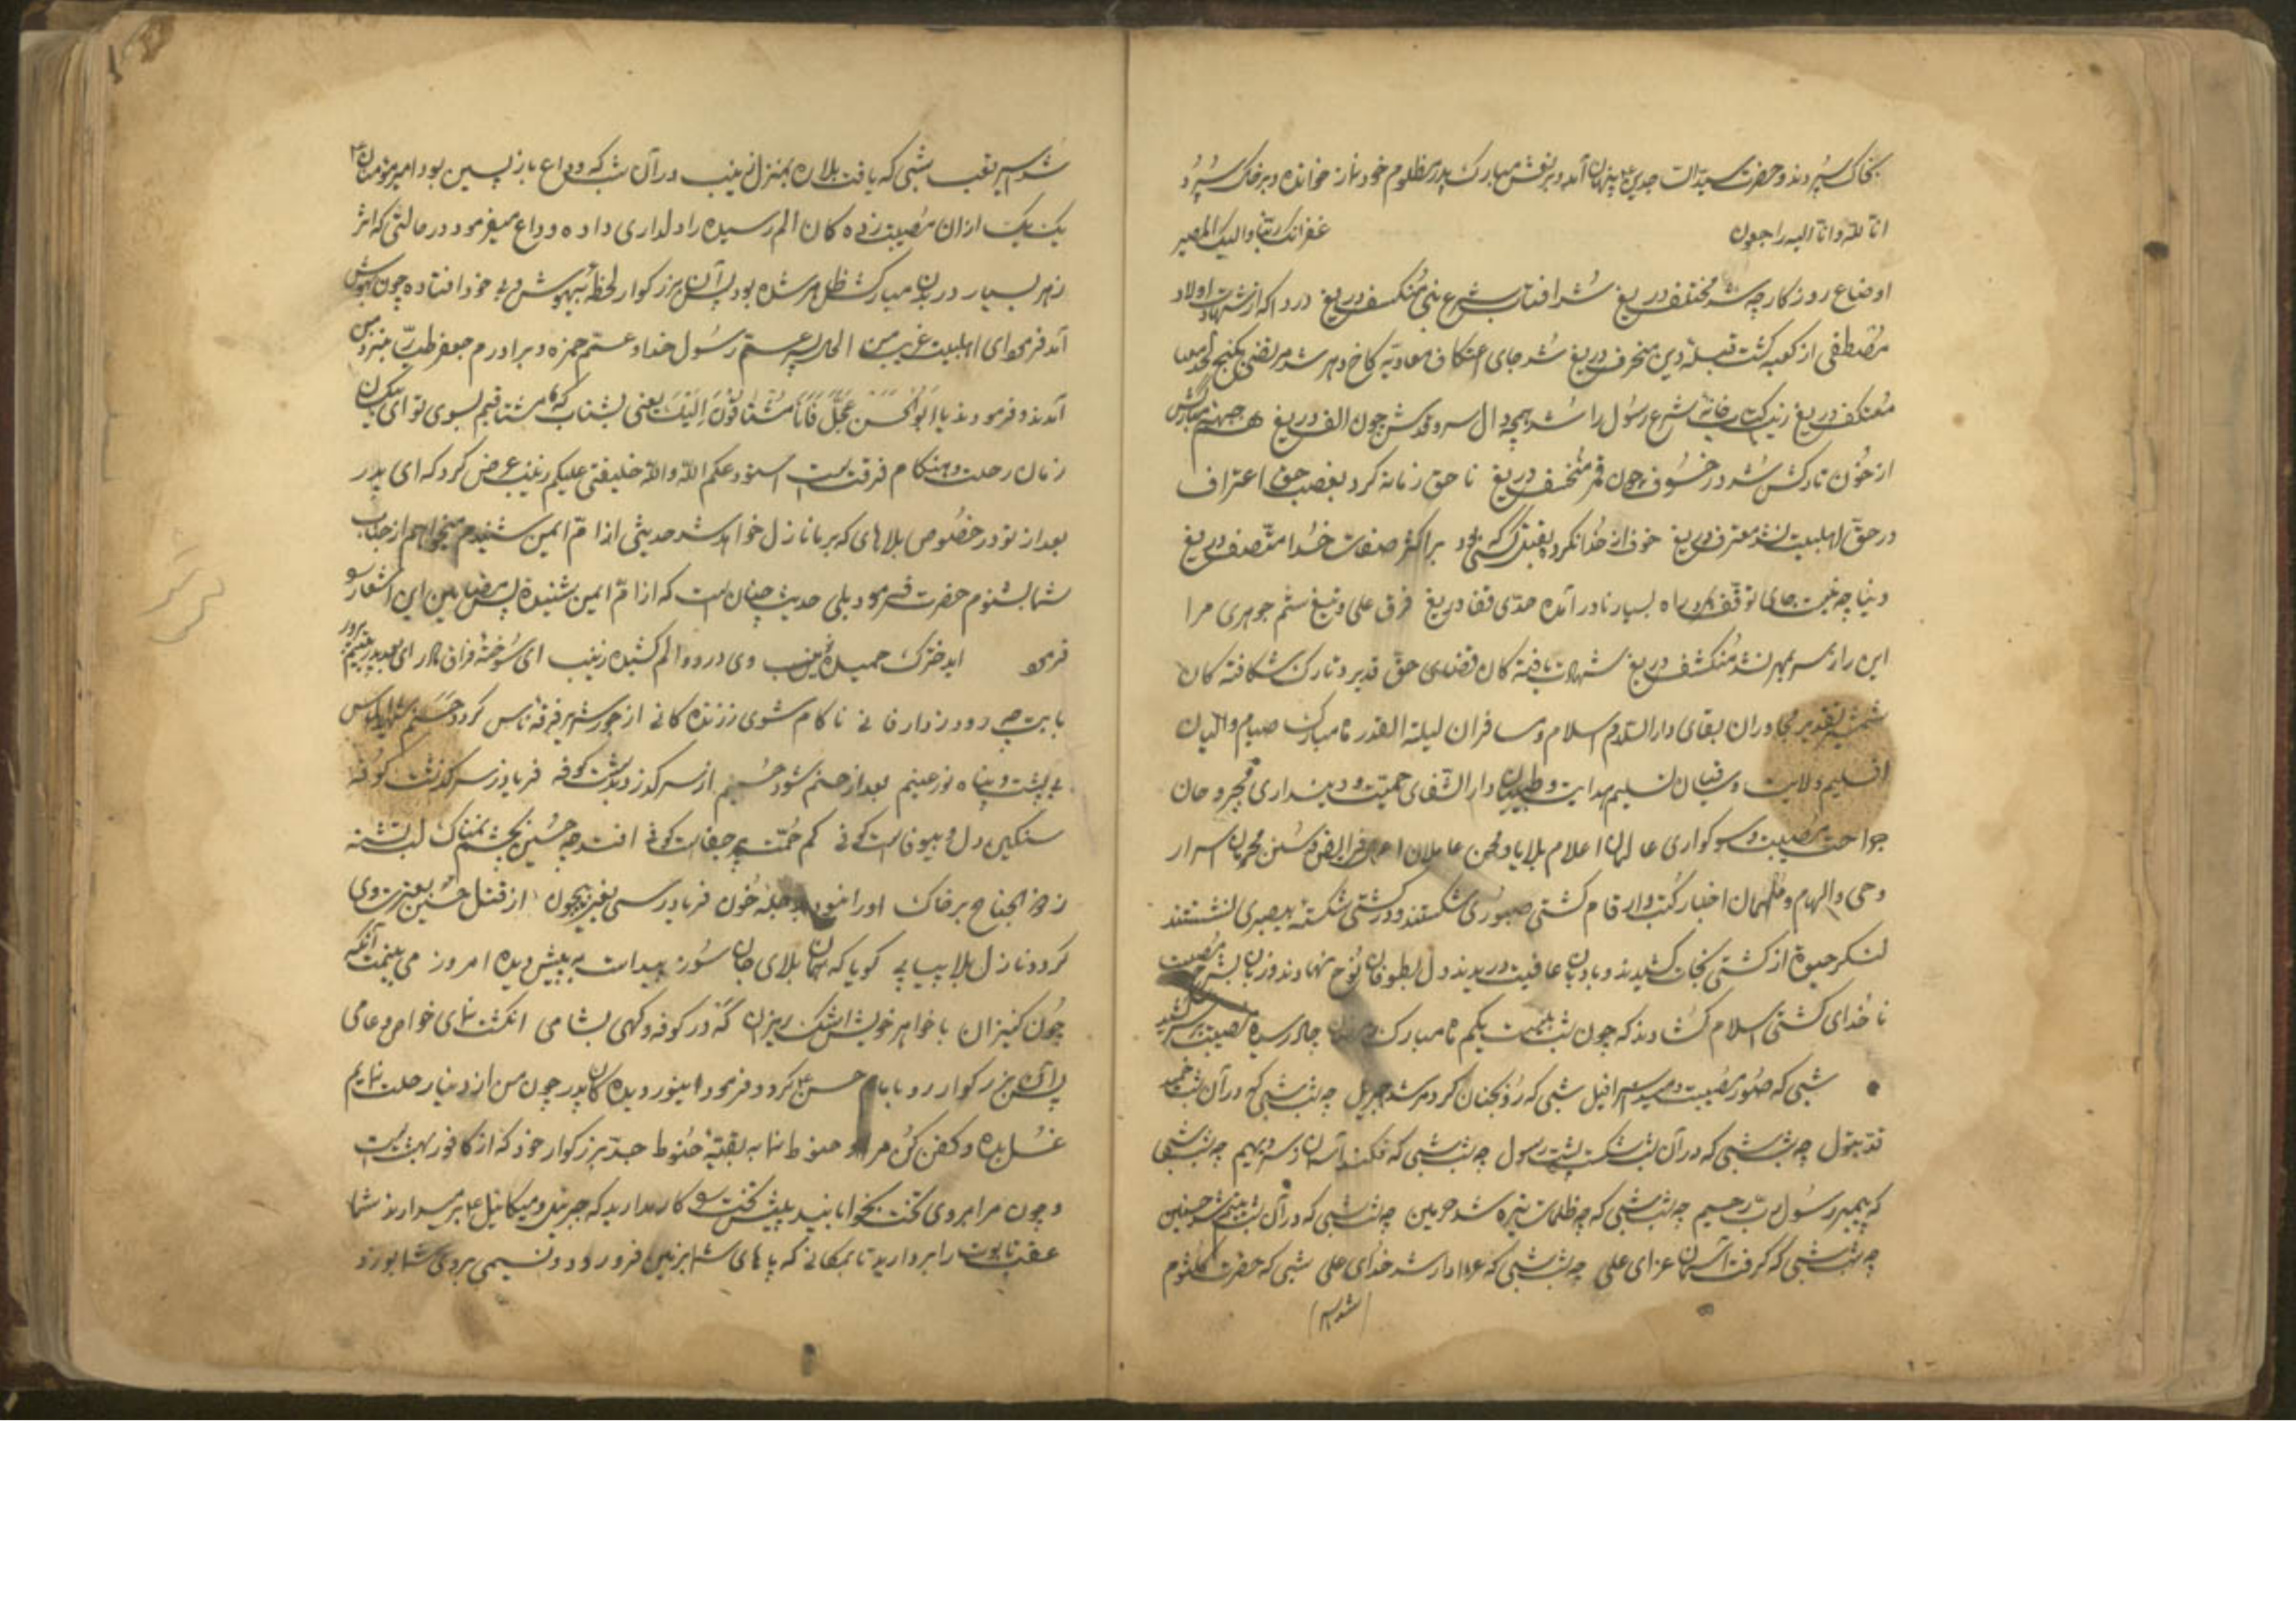 بخاک سپردند و حضرت سید الساجدین ع پنهان آمده و بر نعش مبارک پدر مظلوم خود نماز خوانده و بر خاک سپرد
انا لله و انا الیه راجعون غفرانک ربنا و الیک المصیر
اوضاع روزگار چه شد مختلف دریغ شد افتاب شرع نبی منکسف دریغ دردا که از شهادت اولاد
مصطفی از کعبه گشت قبلهٔ دین منحرف دریغ شد جای اعتکاف معاویه کاخ دهر شد مرتضی بکنج لحد
معتکف دریغ شرع رسول را شد همچو دال سرو قدش چون الف دریغ
از خون تارکش شد در خسوف چون قمر منخسف دریغ نا حق زمانه کرد بغصب حق اعتراف
در حق اهلبیت نشد معترف دریغ خوف از خدا نکرده بقتل کسی که بود بر اکثر صفات خدا متصف دریغ
دنیا چه نیست جای توقف براه بسیار نادر آمده قفا دریغ فرق علی و تیغ ستم جوهری مرا
این راز سر بمهر نشد منکشف دریغ شهادت یافته کان قضای حق قدیر و تارک شکافته کان
شمشیر تقدیر مجاوران بقای دار السلام اسلام و مسافران لیلة القدر ماه مبارک صیام والیان
اقلیم ولایت و تسلیم هدایت و طبیبان دار الشفای حمیت و دینداری مجروحان
جراحت مصیبت و سوگواری عالمان اعلام بلایا و محن عاملان فرایض و سنن محرمان اسرار
وحی و الهام و ملهمان اخبار کتب و ارقام کشتی صبوری شکستند و در کشتی شکسته بیصبری نشستند
لنگر حیوة از کشتی نجات کشیدند و بادبان عافیت دریدند و دل بطوفان نوح نهادند و زبان بشرح مصیبت
نا خدای کشتی اسلام گشادند که چون شب بیست یکم ماه مبارک رمضان در رسید
شبی که صور مصیبت دمید اسرافیل شبی که رو بجنان کرد مرشد جبریل چه شب شبی که در آن شب خمید
قد بتول چه شب شبی که در آن شب شکست پشت رسول چه شب شبی که فکند آسمان ز سر دیهیم چه شب شبی
که پیمبر رسول رب رحیم چه شب شبی که چه ظلمات تیره شد حرمین چه شب شبی که در آن شب یتیم شد حسنین
چه شب شبی که گرفت آسمان عزای علی چه شب شبی که عزادار شد خدای علی شبی که حضرت کلثوم
شد اسیر
شد اسیر تعب شبی که یافت بلا ره بمنزل زینب در آن شب که وداع باز پسین بود امیر مؤمنان ع
یک یک از ان مصیبت زده کان الم رسیده را دلداری داده وداع میفرمود در حالتی که اثر
زهر بسیار در بدن مبارکش ظاهر شده بود پس آن بزرگوار لحظهٔ بیهوش و بی خود افتاده چون بهوش
آمد فرمود ای اهلبیت غریب من الحال پسر عمم رسول خدا و عمم حمزه و برادرم جعفر طیار بنزد من
آمدند و فرمودند یا ابوالحسن عجل فانا مشتاقون الیک یعنی بشتاب که ما مشتاقیم بسوی تو ای بیکسان
زمان رحلت و هنگام فرقت است استودعکم الله و الله خلیفتی علیکم زینب عرض کرد که ای پدر
بعد از تو در خصوص بلاهای که بر ما نازل خواهد شد حدیثی از ام ایمن شنیدم میخواهم از جناب
شما بشنوم حضرت فرمود بلی حدیث چنان است که از ام ایمن شنیده پس این اشعار
فرمود ایدخترک حمیده زینب وی درد و الم کشیده زینب ای سوخته فراق مادر ای
نا کام شوی ز زنده کانی از جور کرد
بی پشت و پناه نور عینم بعد از حسنم شود حسینم از سرگذر و بدشت کوفه فریاد ز سرگذشت کوفه
سنگین دل و بیوفاست کوفی کم حمیت پر جفاست کوفی افتد چه حسین بچشم نمناک لب تشنه
ز ذو الجناح بر خاک او را نبود بدجله خون فریادرسی بغیر بیچون از قتل حسین بعترت وی
گردد نازل بلا پیاپی گویا که همان بلای جان سوز پیداست به پیش دیده امروز می بینمت آنکه
چون کنیزان با خواهر خویش اشک ریزان گه در کوفه و گهی بشامی انگشت نمای خواص و عامی
پس آن بزرگوار رو بامام حسن ع کرد و فرمود اینور دیده کان پدر چون من از دنیا رحلت نمایم
غسل بده و کفن کن مرا و حنوط نما به بقیهٔ حنوط جد بزرگوار خود که از کافور بهشت است
و چون مرا بر روی تخت بخوابانید پیش تخت کار مدارید که جبرئیل و میکائیل ع بر میدارند شما
عقب تابوت را بردارید تا بمکانی که پاهای شما بزمین فرو رود و نسیمی بروی شما بوزد